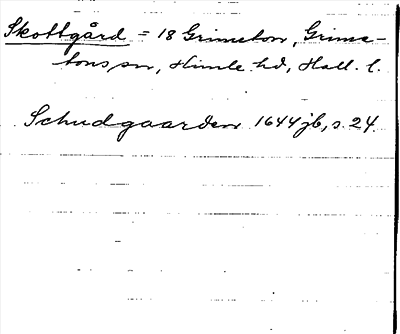 Skottgård = 18 Grimeton, Grime-
tons sn, Himle hd, Hall. l.
Schudgaarden 1644 jb, s. 24.